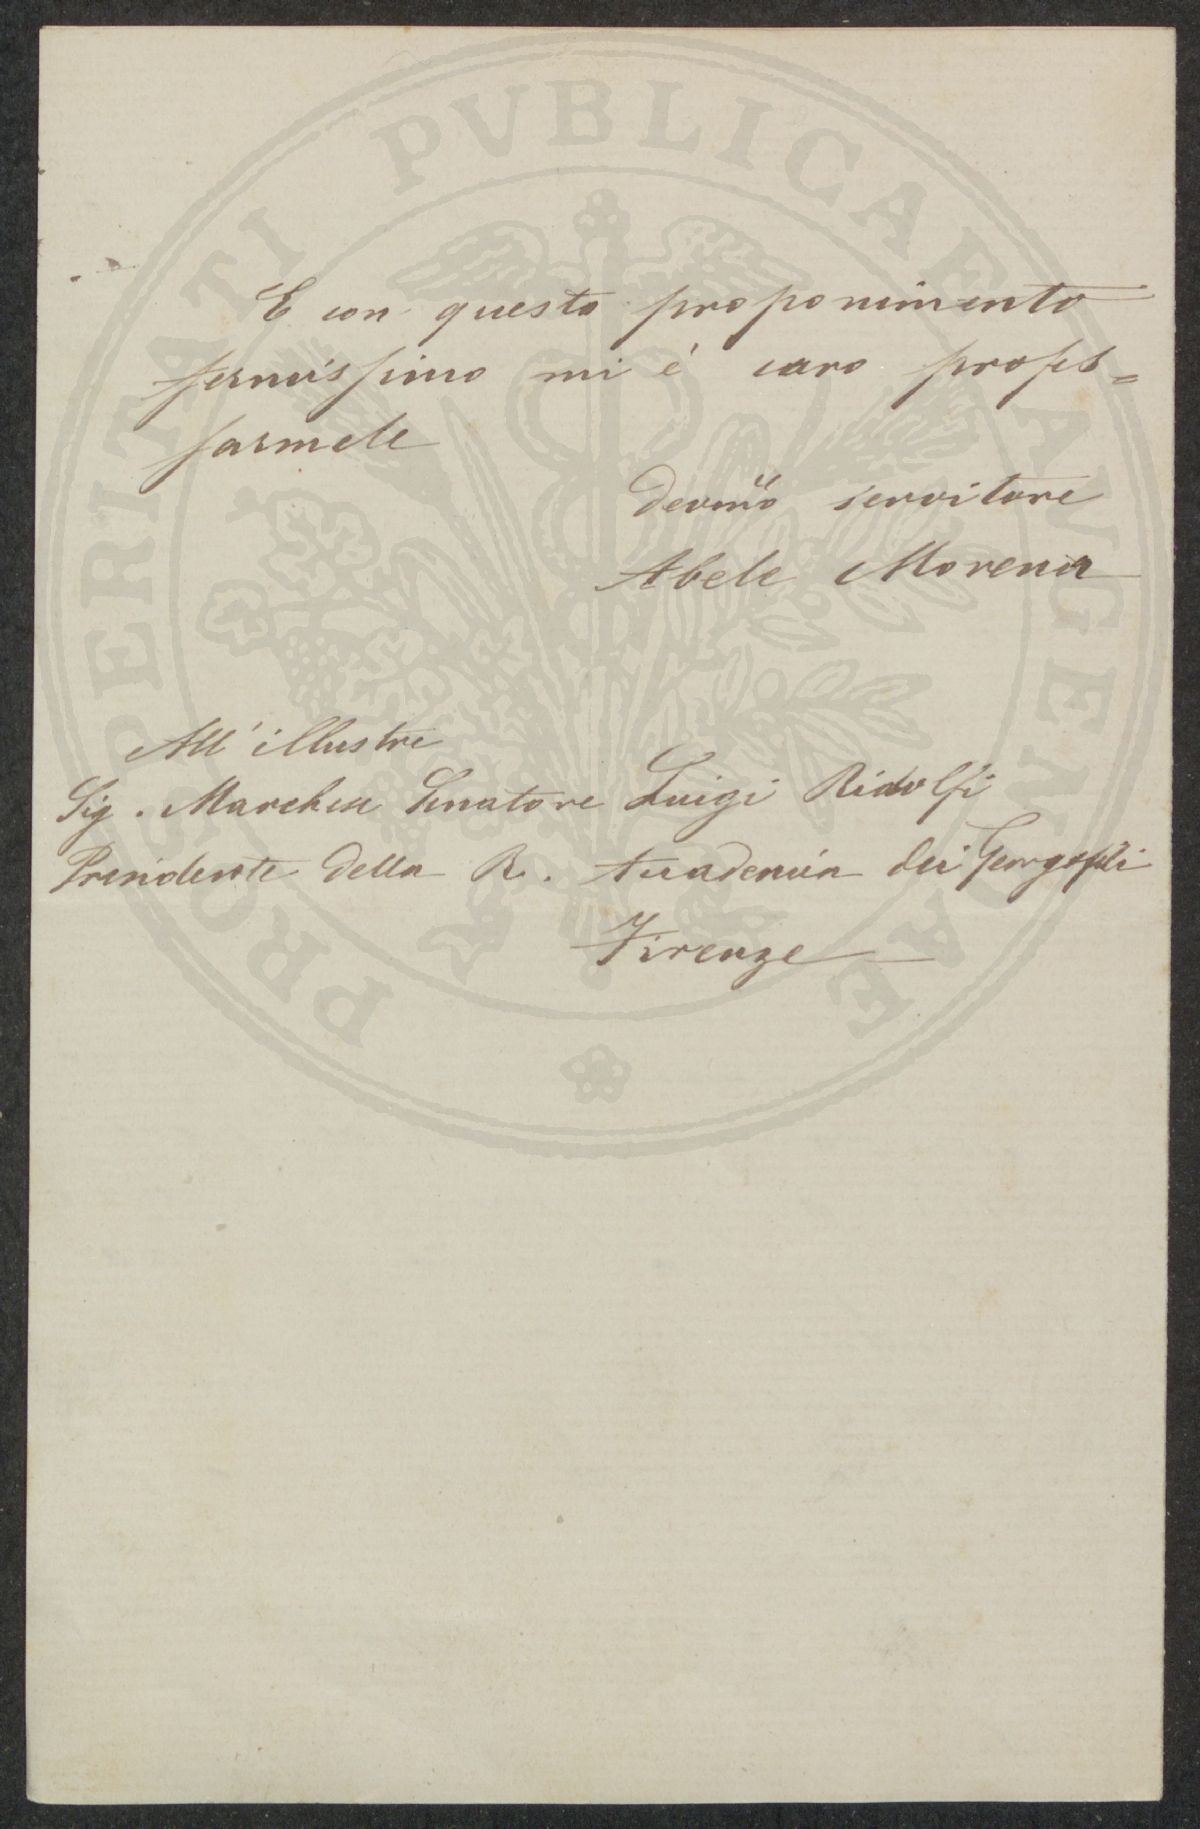 PROSPERITATI PVBLICAE AVGENDAE
E con questo proponimento
fermissimo mi è caro profes=
sarmele
Devmo servitore
Abele Morena
All' illustre
Sig. Marchese Senatore Luigi Ridolfi
Presidente della R. Accademia dei Georgofili
Firenze